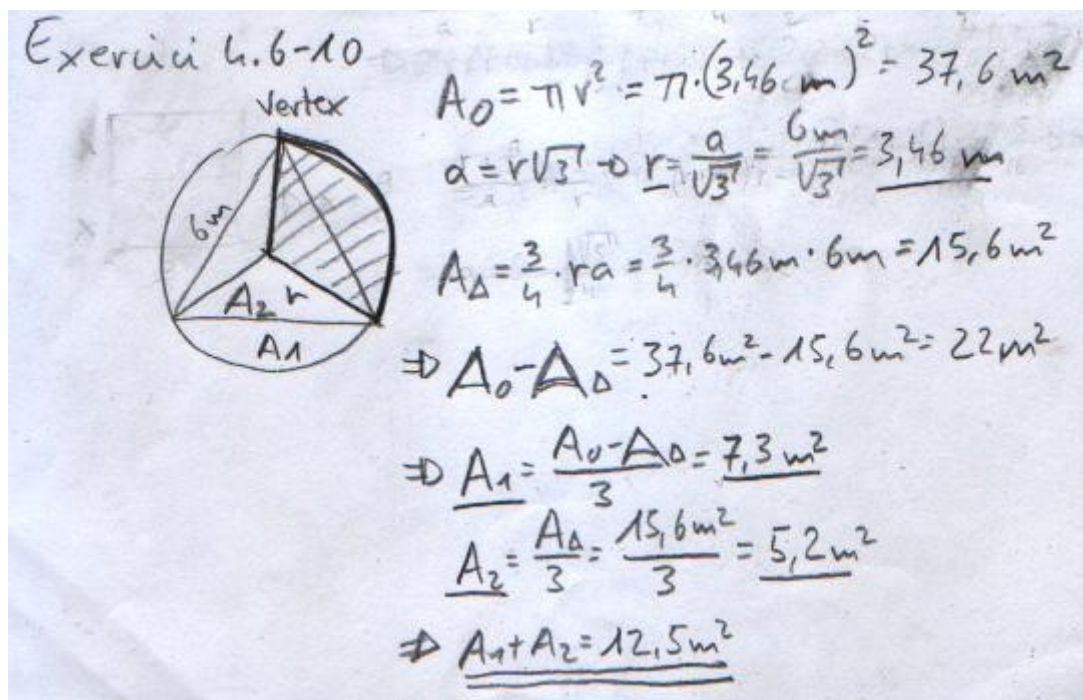 Exercici 4.6-10
vertex
6m
A₂ r
A1
A₀ = πr² = π·(3,46 m)² = 37,6 m²
a = r√3 → r = a/√3 = 6m/√3 = 3,46 m
A△ = 3/4 · ra = 3/4 · 3,46m · 6m = 15,6m²
⇒ A₀ - A△ = 37,6m² - 15,6m² = 22m²
⇒ A₁ = (A₀ - A△)/3 = 7,3 m²
A₂ = A△/3 = 15,6m²/3 = 5,2 m²
⇒ A₁ + A₂ = 12,5m²